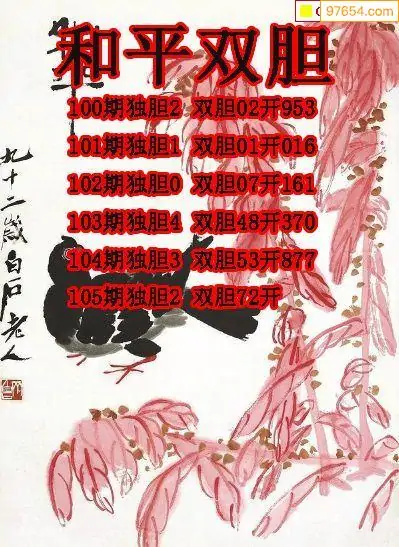 97654.com
和平双胆
100期独胆2 双胆02开953
101期独胆1 双胆01开016
102期独胆0 双胆07开161
103期独胆4 双胆48开370
104期独胆3 双胆53开877
105期独胆2 双胆72开
九十二岁白石老人